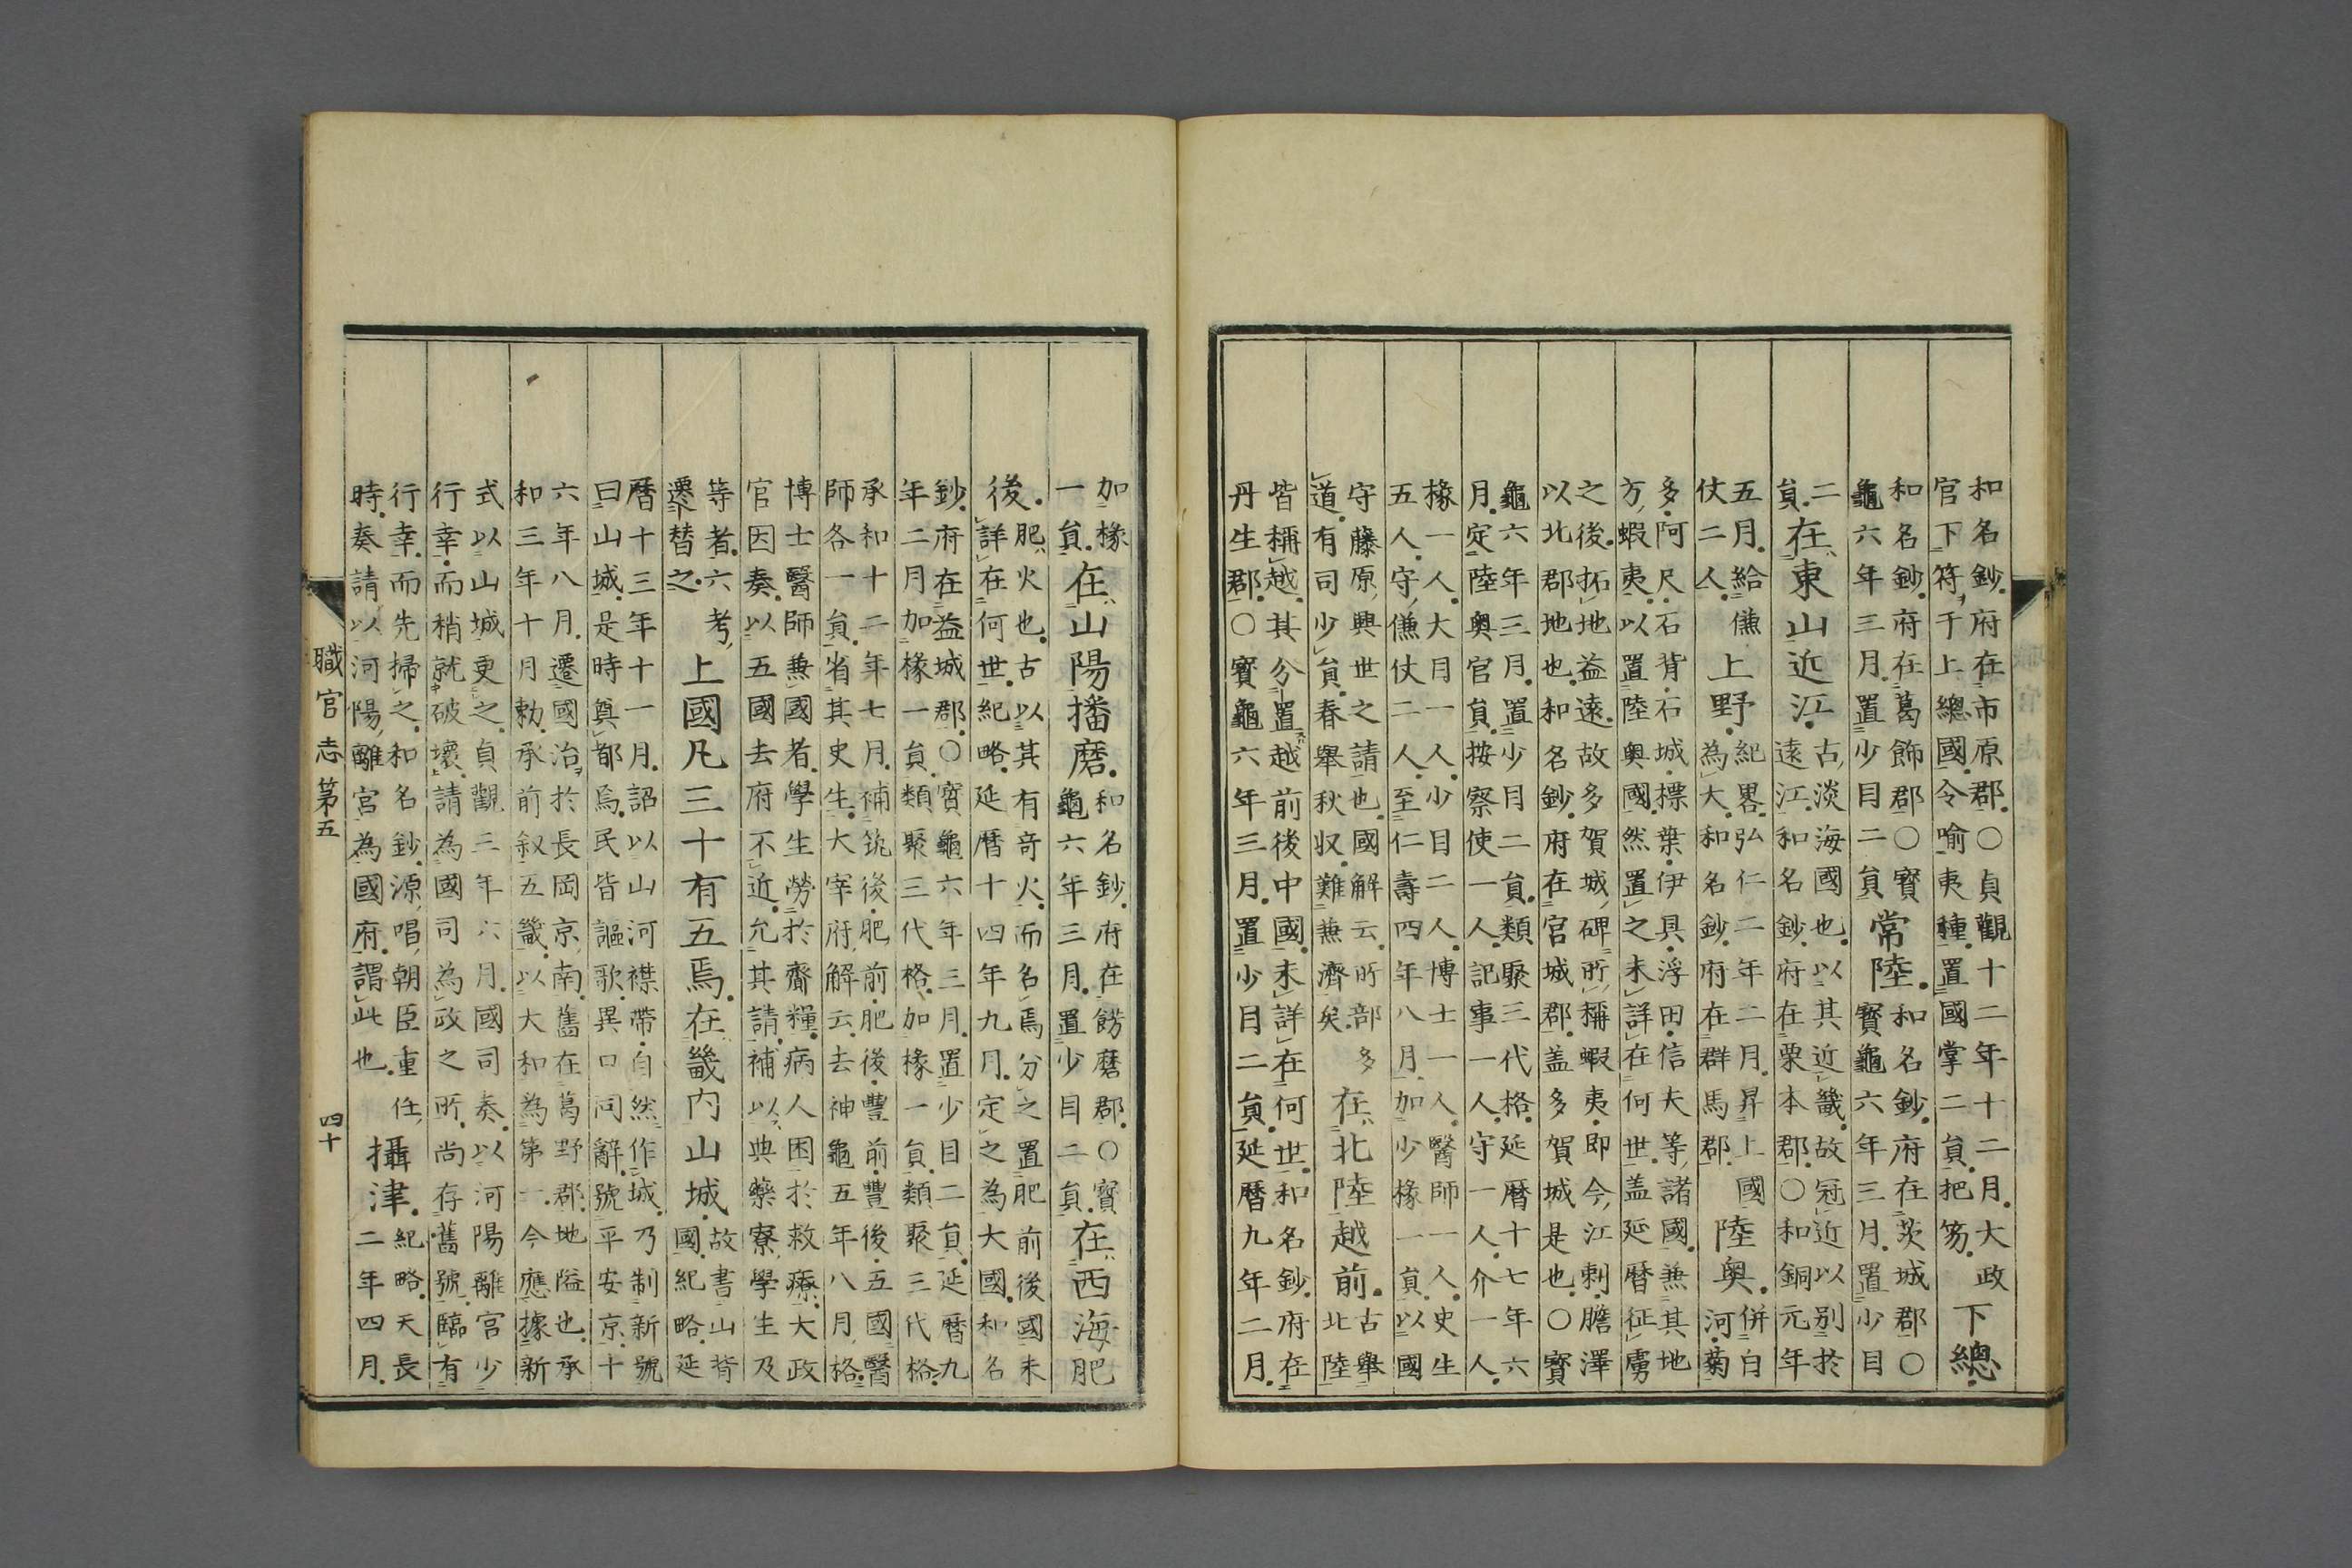 和名鈔府在市原郡○貞觀十二年十二月大政
官下符于上總國令喻夷種置國掌二員把笏下總
和名鈔府在葛飾郡○寶
龜六年三月置少目二員常陸和名鈔府在茨城郡○
寶龜六年三月置少目
二
員在東山近江古淡海國也以其近畿故冠近以別於
遠江和名鈔府在栗本郡○和銅元年
五月給傔
仗二人上野紀畧弘仁二年二月昇上國
為大和名鈔府在群馬郡陸奧併白
河菊
多阿尺石背石城標葉伊具浮田信夫等諸國兼其地
方蝦夷以置陸奧國然置之未詳在何世盖延曆征虜
之後拓地益遠故多賀城碑所稱蝦夷即今江刺膽澤
以北郡地也和名鈔府在官城郡盖多賀城是也○寶
龜六年三月置少目二員類聚三代格延曆十七年六
月定陸奧官員按察使一人記事一人守一人介一人
掾一人大目一人少目二人博士一人醫師一人史生
五人守傔仗二人至仁壽四年八月加少掾一員以國
守藤原興世之請也國解云所部多
道有司少員春舉秋収難兼濟矣在北陸越前古舉
北陸
皆稱越其分置越前後中國未詳在何世和名鈔府在
丹生郡○寶龜六年三月置少目二員延曆九年二月
加掾
一員在山陽播磨和名鈔府在餝磨郡○寶
龜六年三月置少目二員在西海肥
後肥火也古以其有奇火而名焉分之置肥前後國未
詳在何世紀略延曆十四年九月定之為大國和名
鈔府在益城郡○寶龜六年三月置少目二員延曆九
年二月加掾一員類聚三代格加掾一員類聚三代格
承和十二年七月補筑後肥前肥後豐前豐後五國醫
師各一員省其史生大宰府解云去神龜五年八月格
博士醫師兼國者學生勞於齎糧病人困於救療大政
官因奏以五國去府不近允其請補以典藥寮學生及
等者六考
遷替之上國凡三十有五焉在畿内山城故書山背
國紀略延
曆十三年十一月詔以山河襟帶自然作城乃制新號
曰山城是時奠都焉民皆謳歌異口同辭號平安京十
六年八月遷國治於長岡京南舊在葛野郡地隘也承
和三年十月勅承前叙五畿以大和為第一今應據新
式以山城更之貞觀三年六月國司奏以河陽離宮少
行幸而稍就破壞請為國司為政之所尚存舊號臨有
行幸而先掃之和名鈔源唱朝臣重任
時奏請以河陽離宮為國府謂此也攝津紀略天長
二年四月
職官志第五
四十